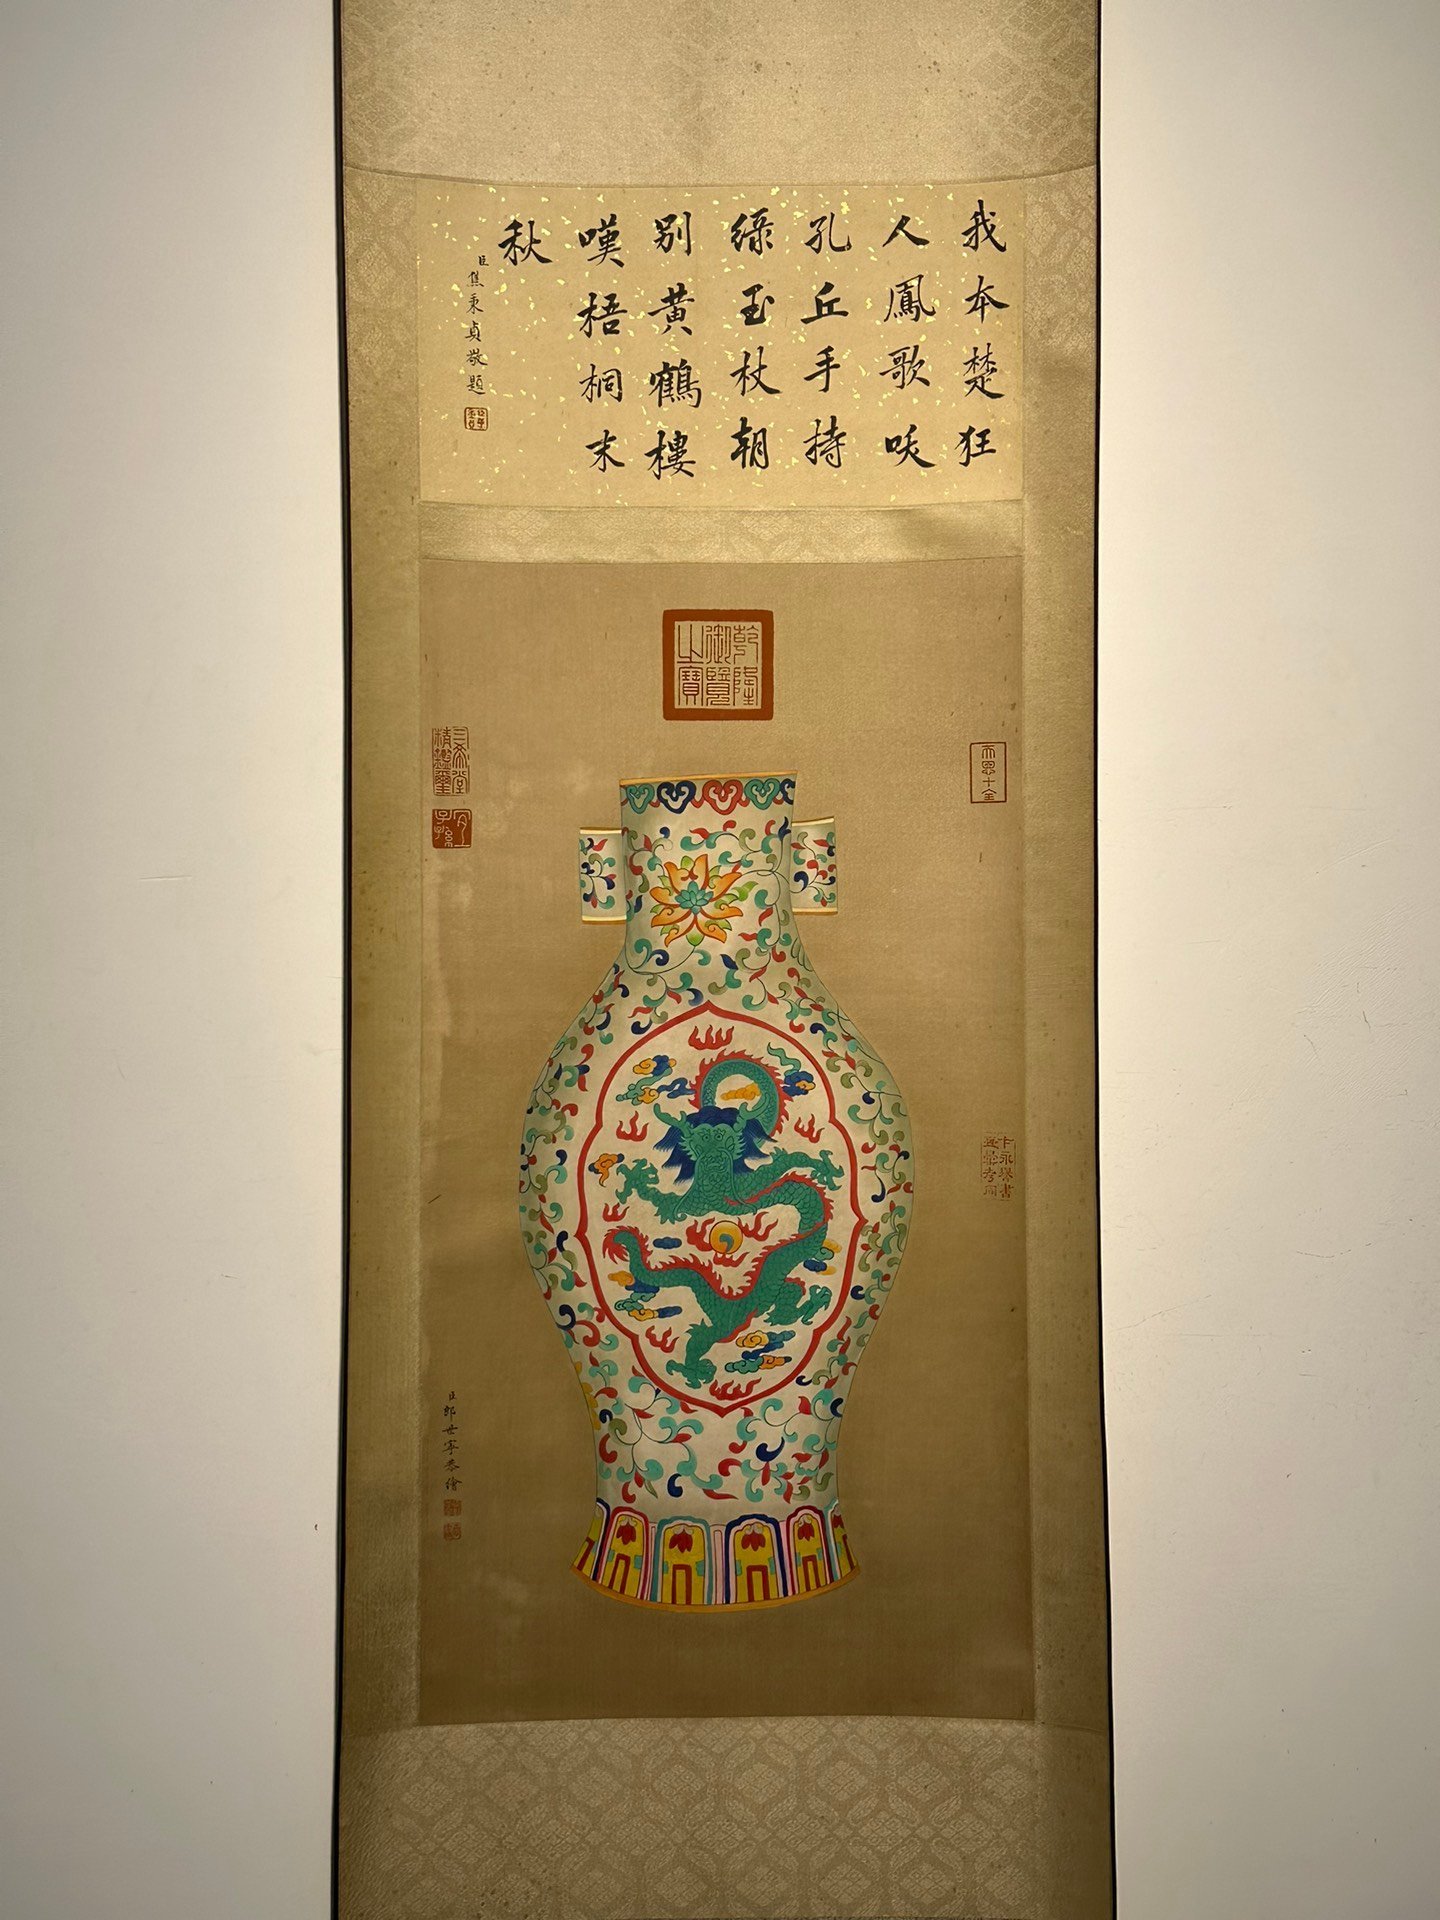 我本楚狂
人鳳歌咲
孔丘手持
綠玉杖朝
别黄鶴樓
嘆梧桐末
秋
臣焦秉貞敬題
乾隆御覽之寶
三希堂精鑑璽
宜子孫
臣郎世寧恭繪